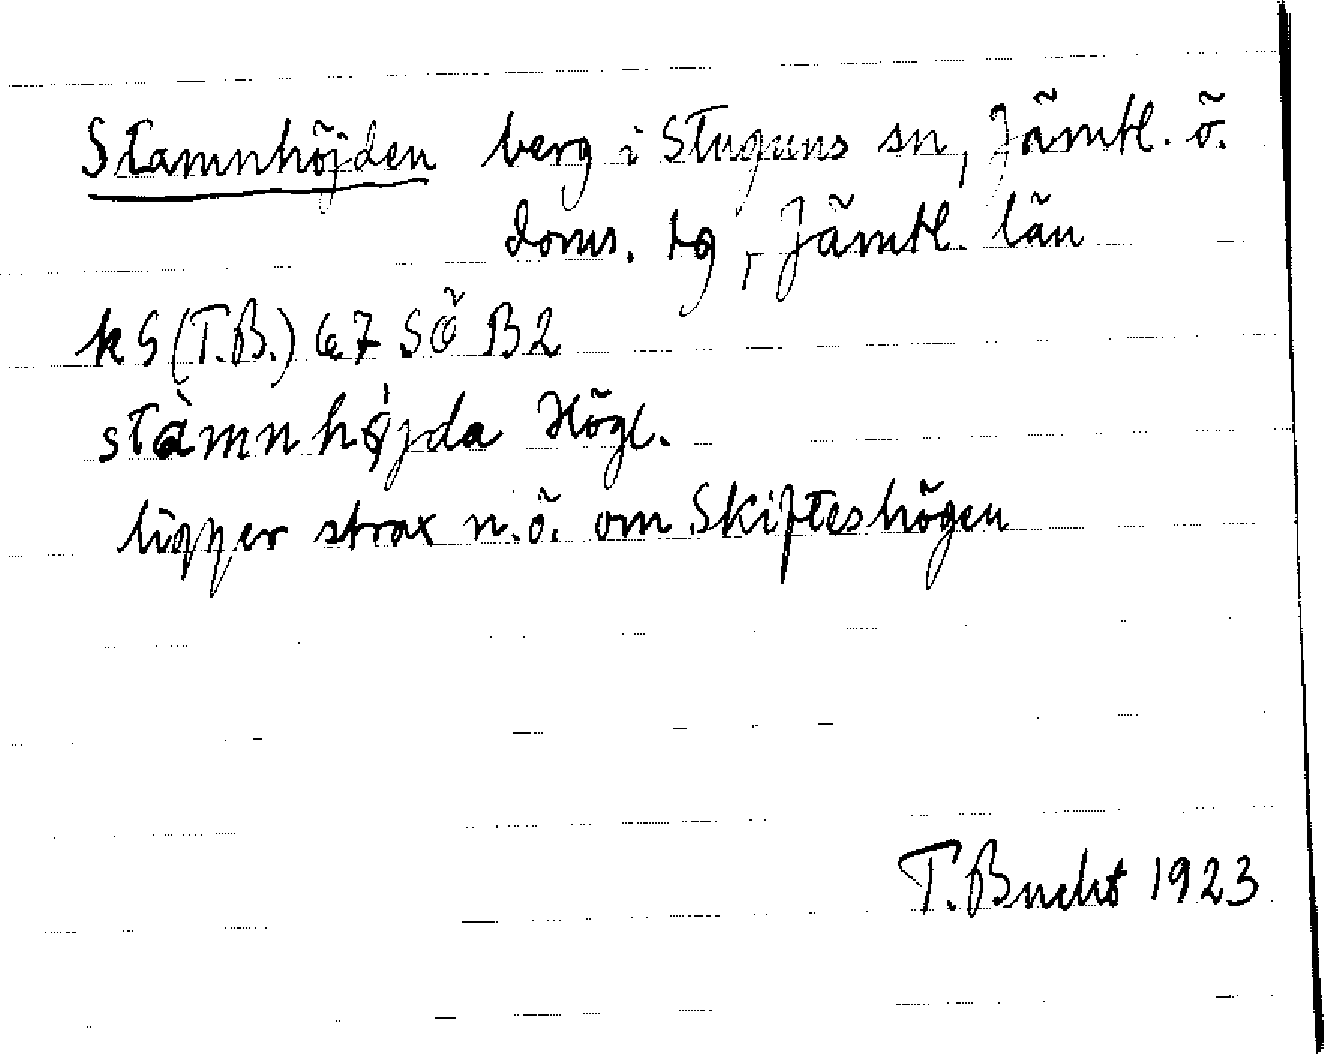 Stamnhöjden berg i Stuguns sn, Jämtl. ö.
doms. tg, Jämtl. län
kS (T.B.) 67 SÖ B2
stàmnhǿjda Högl.
ligger strax n.ö. om Skifteshögen
T. Bucht 1923